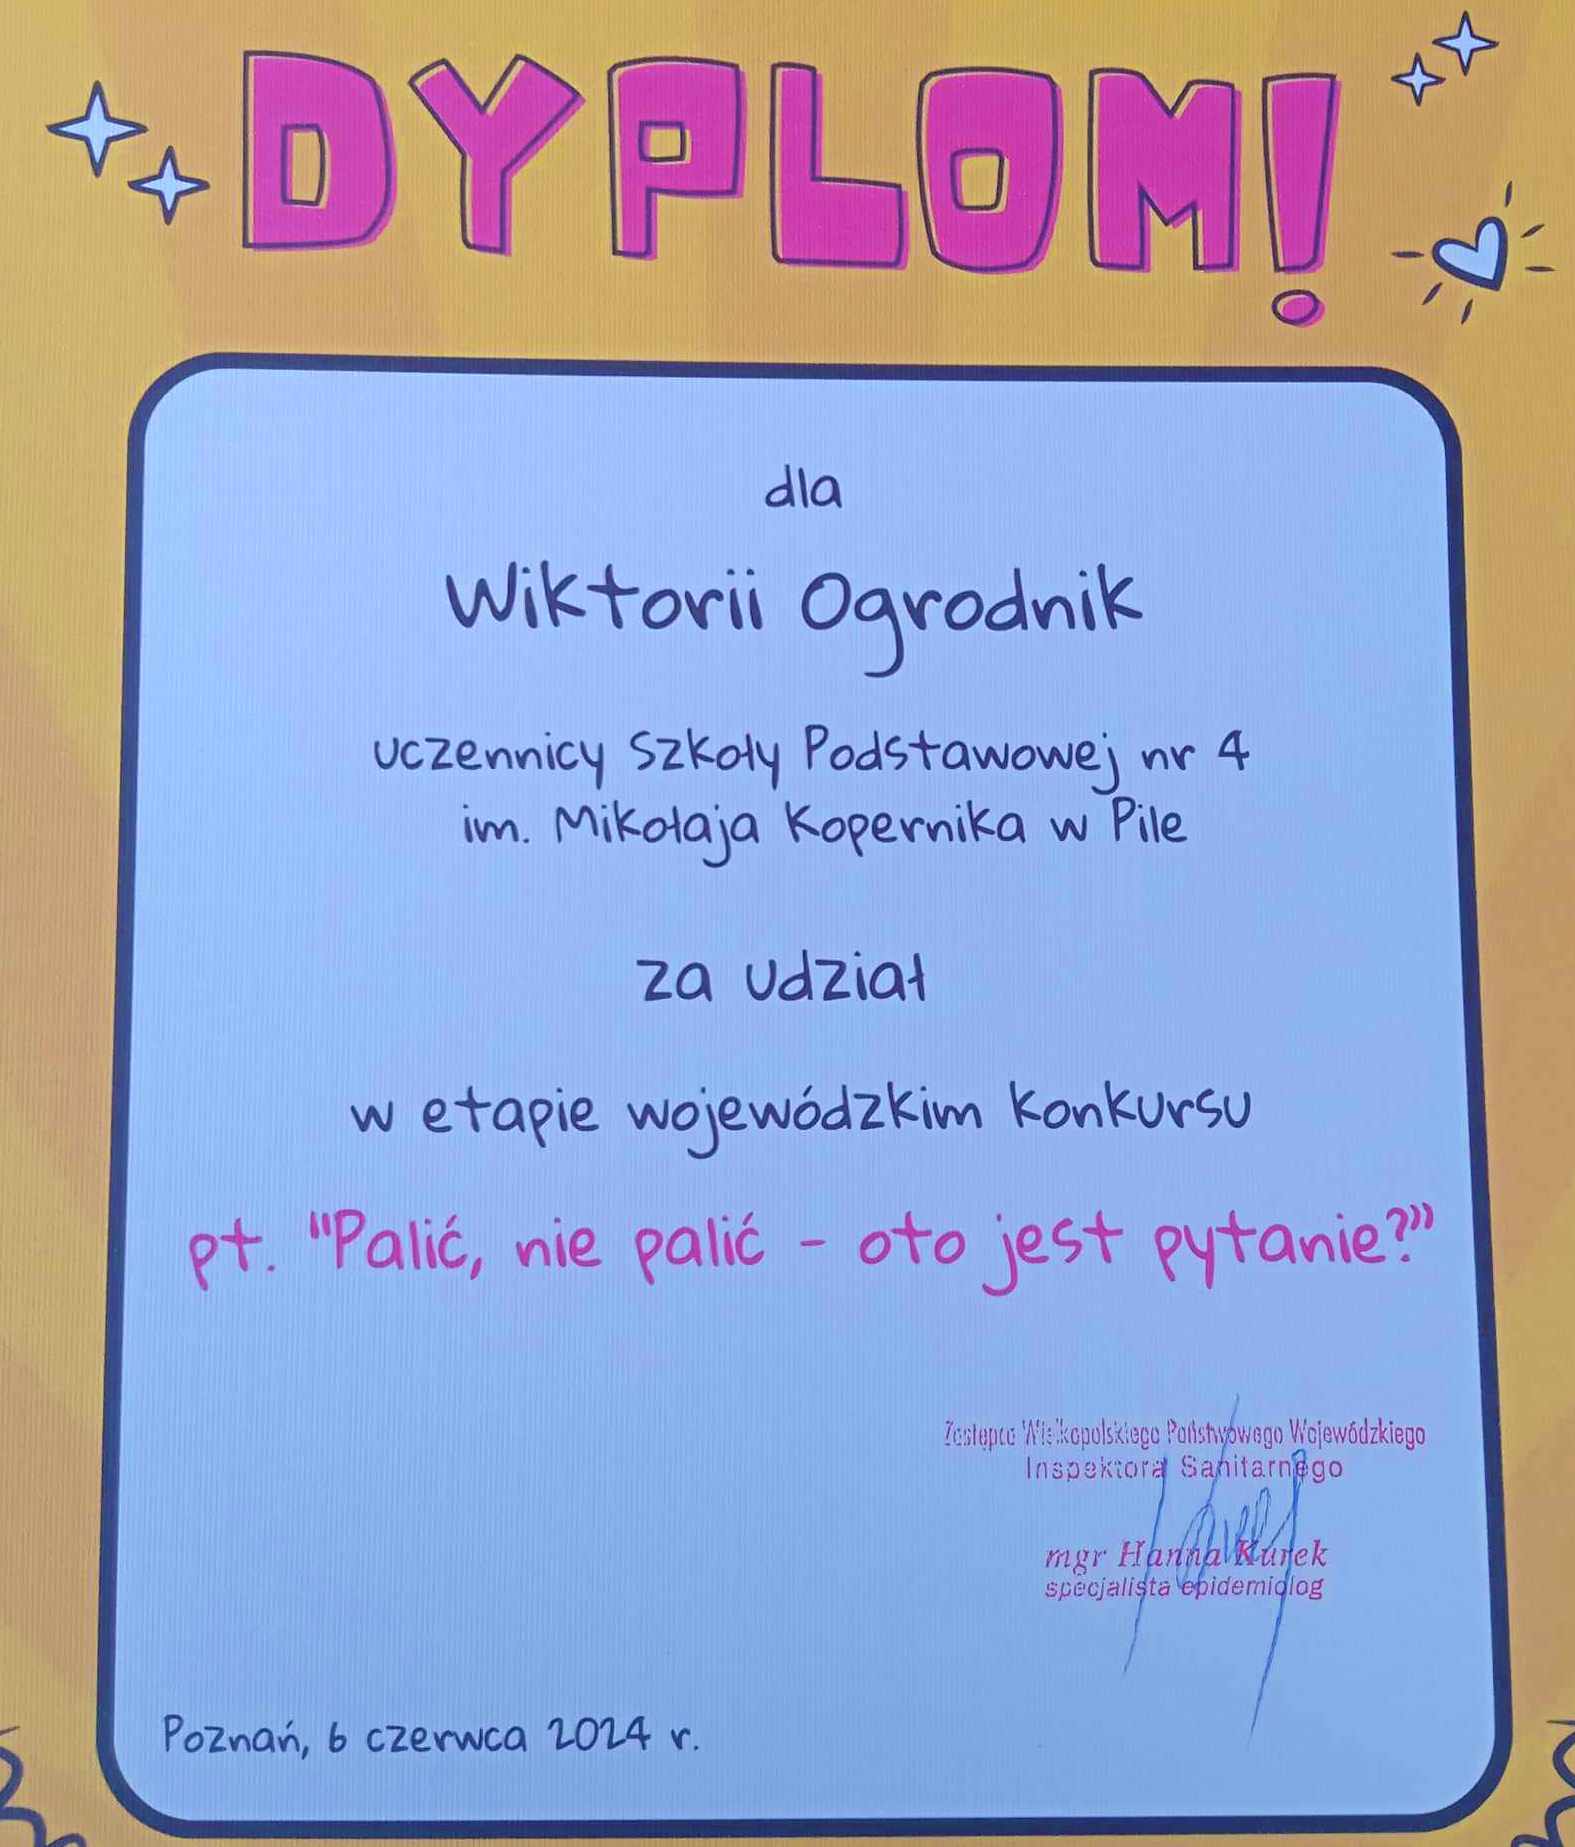 DYPLOM!
dla
Wiktorii Ogrodnik
uczennicy Szkoły Podstawowej nr 4
im. Mikołaja Kopernika w Pile
za udział
w etapie wojewódzkim konkursu
pt. "Palić, nie palić - oto jest pytanie?”
Zastępca Wielkopolskiego Państwowego Wojewódzkiego
Inspektora Sanitarnego
mgr Hanna Kurek
specjalista epidemiolog
Poznań, 6 czerwca 2024 r.